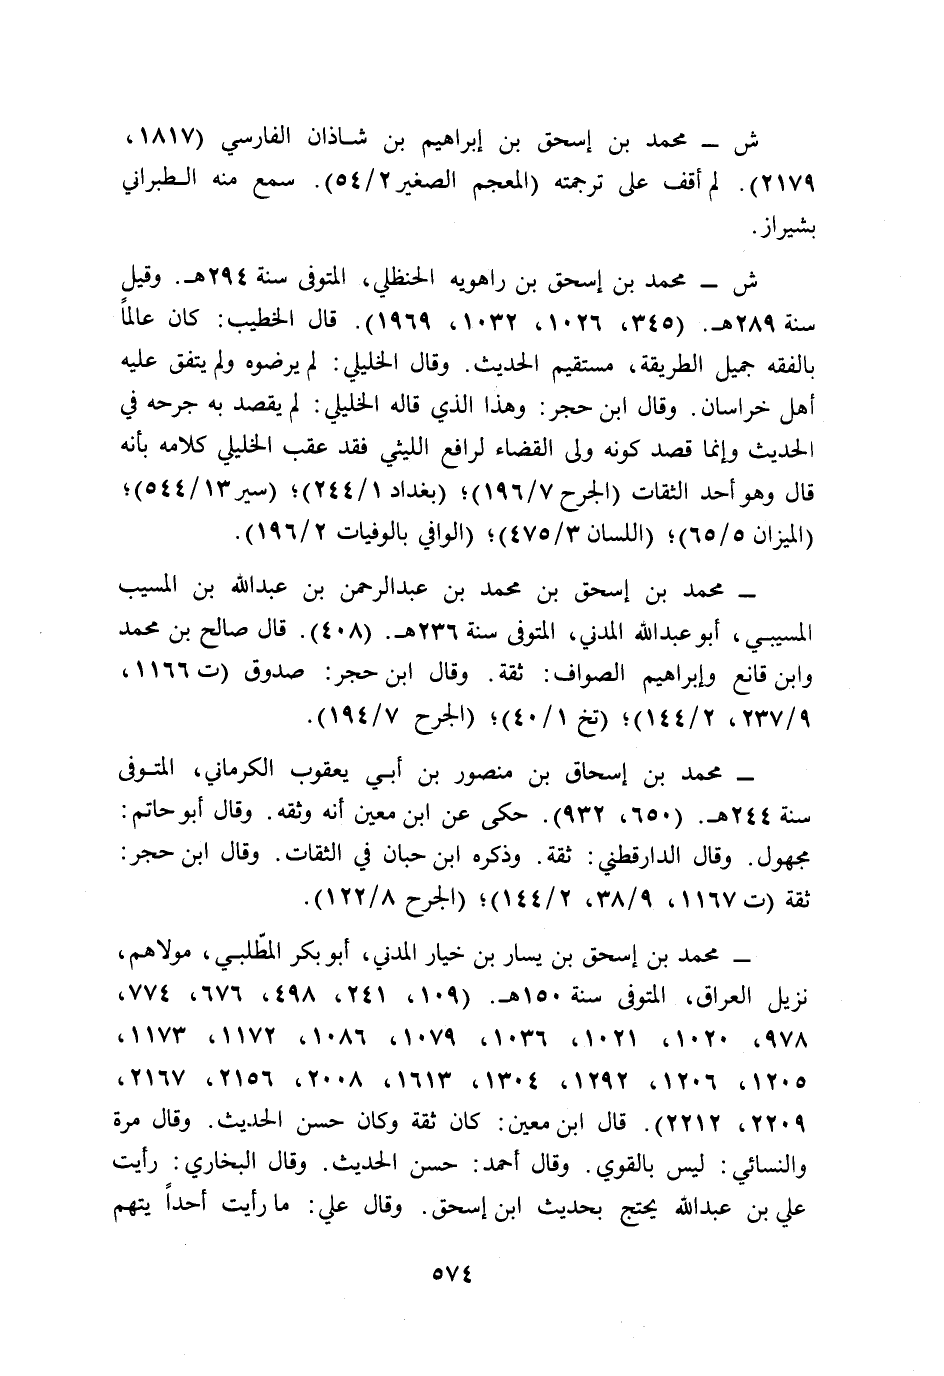 ش ــ محمد بن إسحق بن إبراهيم بن شاذان الفارسي (١٨١٧،
٢١٧٩). لم أقف على ترجمته (المعجم الصغير ٥٤/٢). سمع منه الطبراني
بشيراز.
ش ــ محمد بن إسحق بن راهويه الحنظلي، المتوفى سنة ٢٩٤هـ. وقيل
سنة ٢٨٩هـ. (٣٤٥، ١٠٢٦، ١٠٣٢، ١٩٦٩). قال الخطيب: كان عالماً
بالفقه جميل الطريقة، مستقيم الحديث. وقال الخليلي: لم يرضوه ولم يتفق عليه
أهل خراسان. وقال ابن حجر: وهذا الذي قاله الخليلي: لم يقصد به جرحه في
الحديث وإنما قصد كونه ولى القضاء لرافع الليثي فقد عقب الخليلي كلامه بأنه
قال وهو أحد الثقات (الجرح ١٩٦/٧)؛ (بغداد ٢٤٤/١)؛ (سير ٥٤٤/١٣)؛
(الميزان ٦٥/٥)؛ (اللسان ٤٧٥/٣)؛ (الوافي بالوفيات ١٩٦/٢).
ــ محمد بن إسحق بن محمد بن عبدالرحمن بن عبدالله بن المسيب
المسيبي، أبو عبدالله المدني، المتوفى سنة ٢٣٦هـ. (٤٠٨). قال صالح بن محمد
وابن قانع وإبراهيم الصواف: ثقة. وقال ابن حجر: صدوق (ت ١١٦٦،
٢٣٧/٩، ١٤٤/٢)؛ (تخ ٤٠/١)؛ (الجرح ١٩٤/٧).
ــ محمد بن إسحاق بن منصور بن أبي يعقوب الكرماني، المتوفى
سنة ٢٤٤هـ. (٦٥٠، ٩٣٢). حكى عن ابن معين أنه وثقه. وقال أبو حاتم:
مجهول. وقال الدارقطني: ثقة. وذكره ابن حبان في الثقات. وقال ابن حجر:
ثقة (ت ١١٦٧، ٣٨/٩، ١٤٤/٢)؛ (الجرح ١٢٢/٨).
ــ محمد بن إسحق بن يسار بن خيار المدني، أبو بكر المطّلبي، مولاهم،
نزيل العراق، المتوفى سنة ١٥٠هـ. (١٠٩، ٢٤١، ٤٩٨، ٦٧٦، ٧٧٤،
٩٧٨، ١٠٢٠، ١٠٢١، ١٠٣٦، ١٠٧٩، ١٠٨٦، ١١٧٢، ١١٧٣،
١٢٠٥، ١٢٠٦، ١٢٩٢، ١٣٠٤، ١٦١٣، ٢٠٠٨، ٢١٥٦، ٢١٦٧،
٢٢٠٩، ٢٢١٢). قال ابن معين: كان ثقة وكان حسن الحديث. وقال مرة
والنسائي: ليس بالقوي. وقال أحمد: حسن الحديث. وقال البخاري: رأيت
علي بن عبدالله يحتج بحديث ابن إسحق. وقال علي: ما رأيت أحداً يتهم
٥٧٤